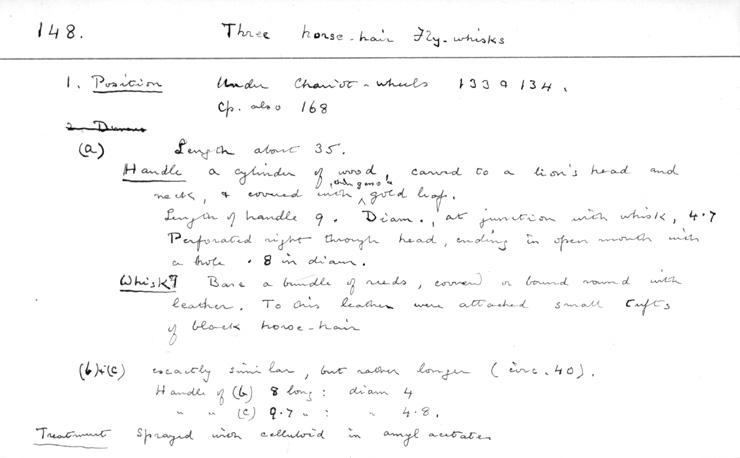 148. Three horse-hair Fly-whisks
1. Position Under Chariot-wheels 133 & 134.
Cp. also 168
2. Dimens
(a) Length about 35.
Handle a cylinder of wood, carved to a lion's head and
neck, & covered with gold leaf.
Length of handle 9. Diam., at junction with whisk, 4.7
Perforated right through head, ending in open mouth with
a hole .8 in diam.
Whisk Base a bundle of reeds, covered or bound round with
leather. To this leather were attached small tufts
of black horse-hair
(b)+(c) exactly similar, but rather longer (circ. 40).
Handle of (b) 8 long : diam 4
" " (c) 9.7 " : " 4.8.
Treatment Sprayed with celluloid in amyl acetate